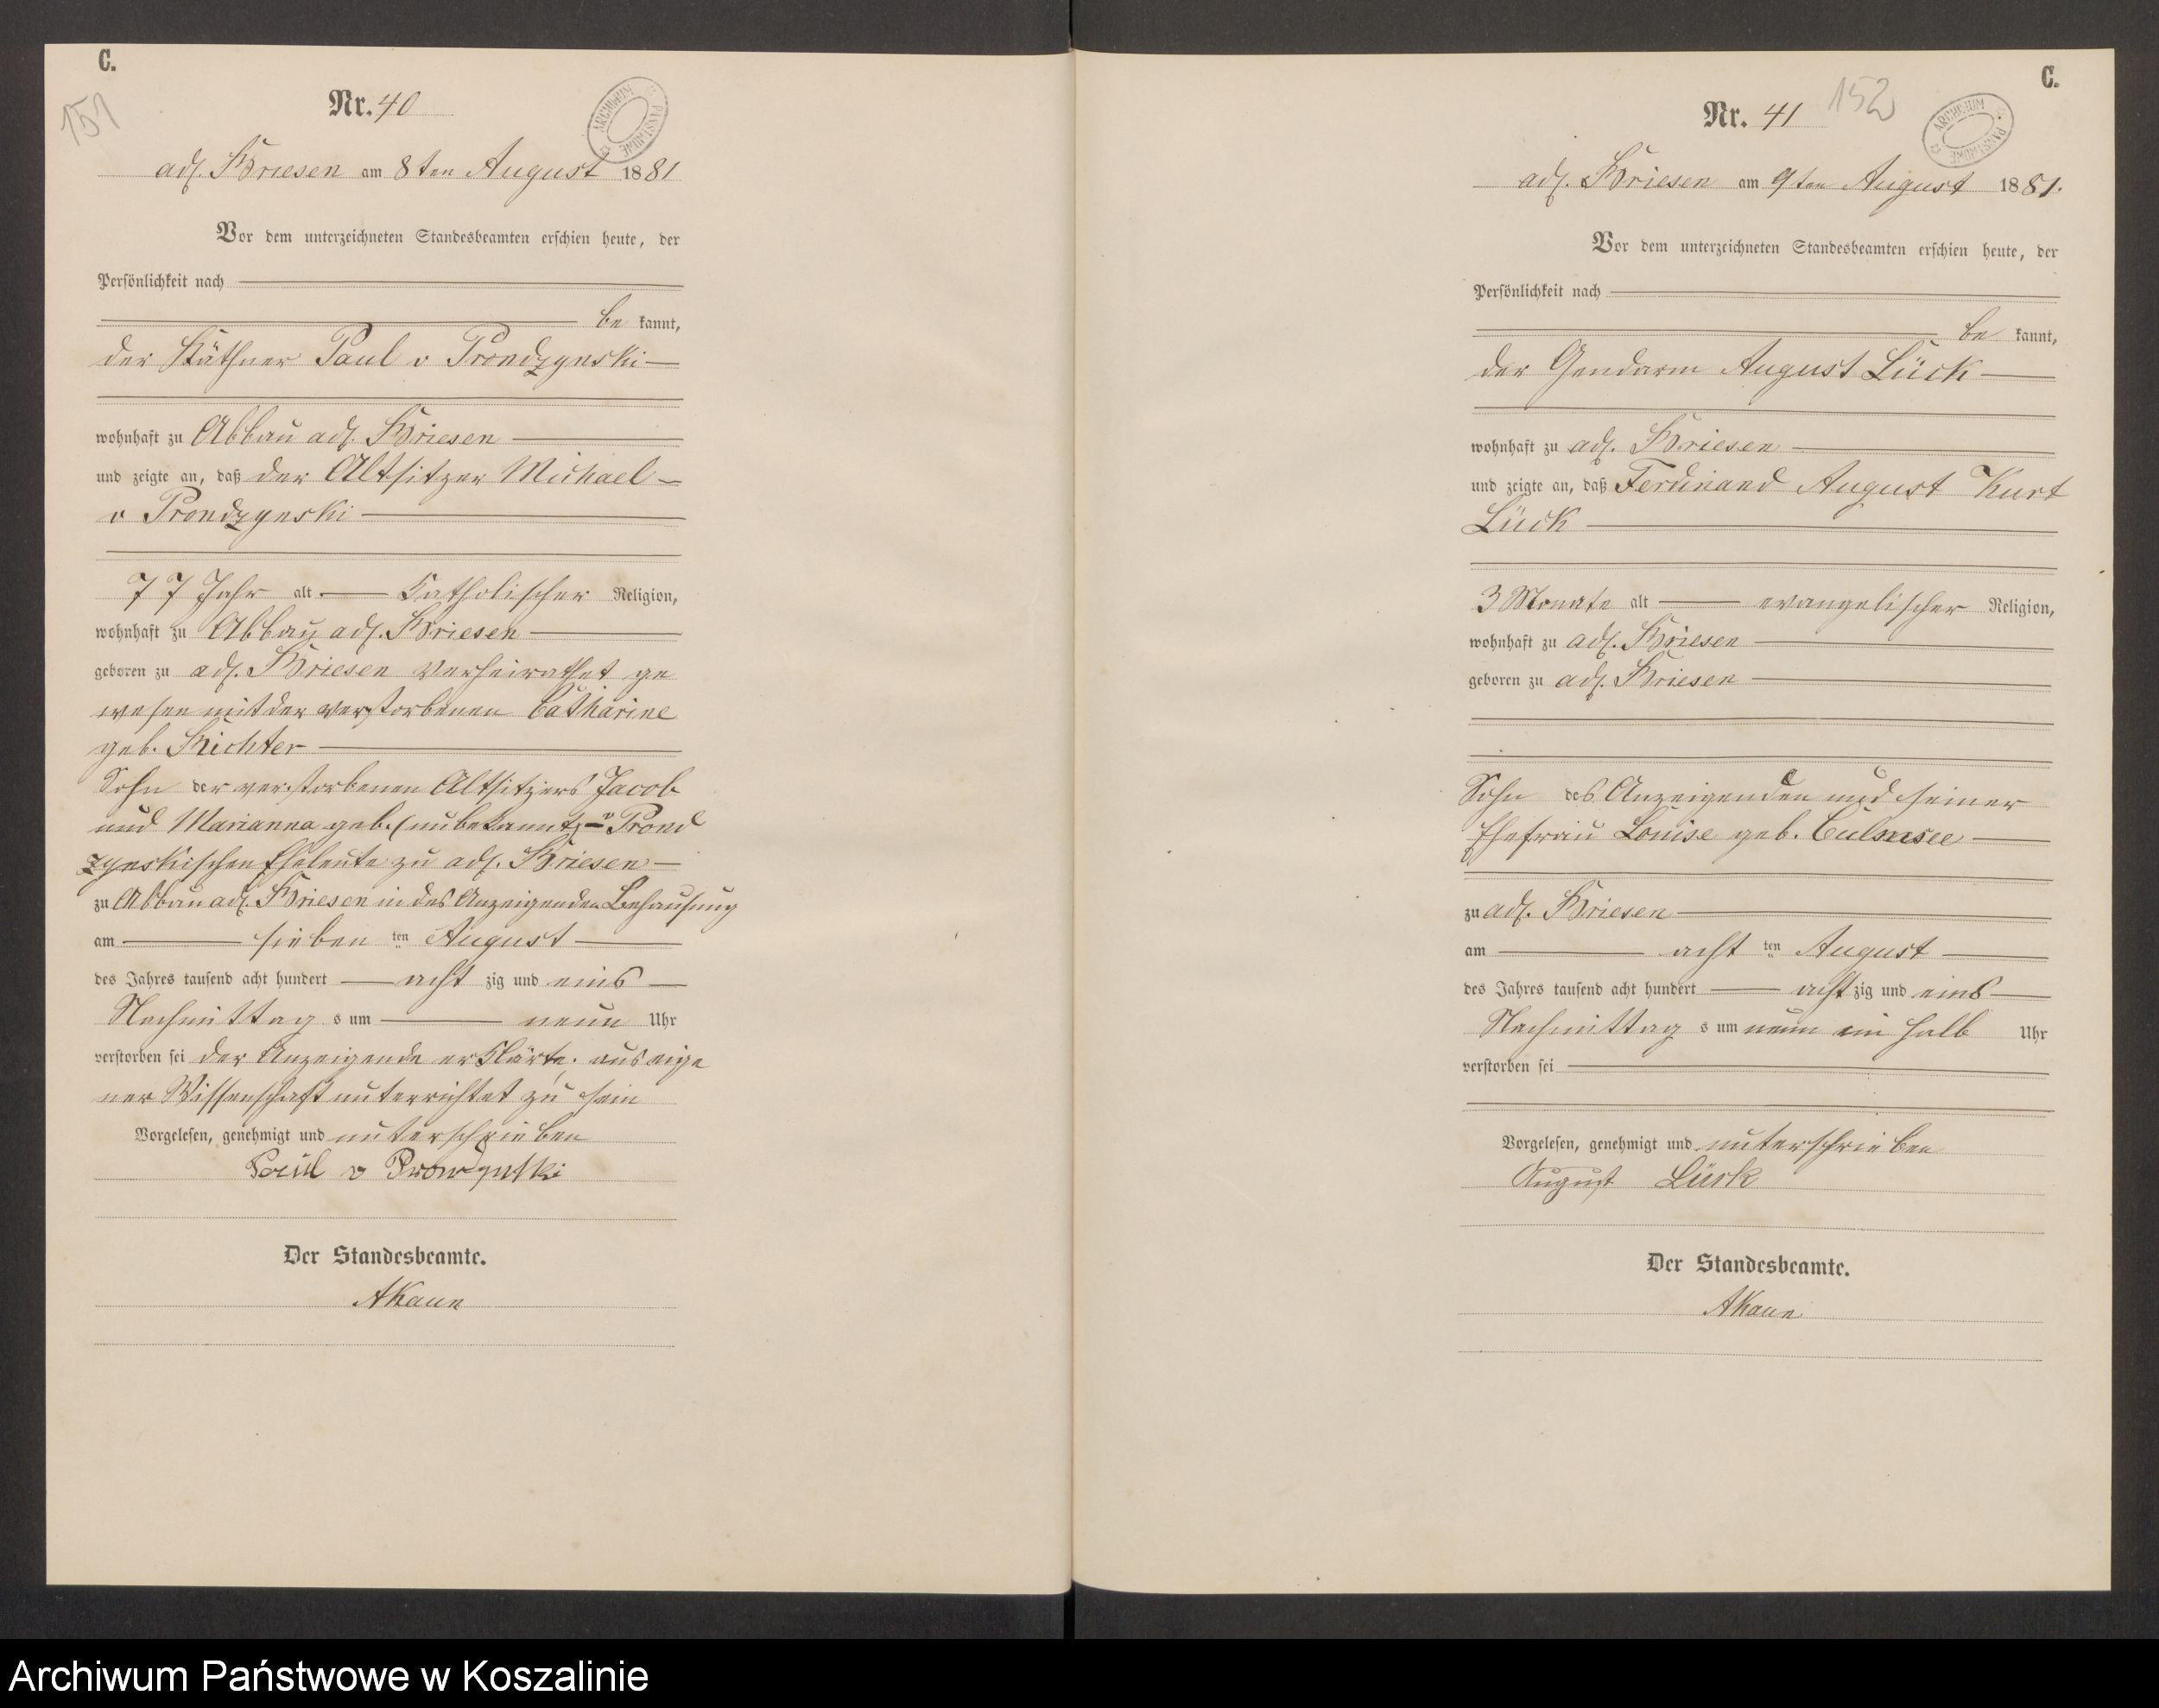 C.
151
Nr. 40
ARCHIWUM PAŃSTWOWE
adl. Briesen am 8ten August 1881
Vor dem unterzeichneten Standesbeamten erschien heute, der
Persönlichkeit nach
be kannt,
der Käthner Paul v Prondzynski
wohnhaft zu Abbau adl. Briesen
und zeigte an, daß der Altsitzer Michael
v Prondzynski
77 Jahr alt Katholischer Religion,
wohnhaft zu Abbau adl. Briesen
geboren zu adl. Briesen verheirathet ge
wesen mit der verstorbenen Catharine
geb. Richter
Sohn der verstorbenen Altsitzers Jacob
und Marianna geb. (unbekannt) v Prond
zynskischen Eheleute zu adl. Briesen
zu Abbau adl. Briesen in des Anzeigenden Behausung
am sieben ten August
des Jahres tausend acht hundert acht zig und eins
Nachmittag s um neun Uhr
verstorben sei der Anzeigende erklärte, aus eige
ner Wissenschaft unterrichtet zu sein
Vorgelesen, genehmigt und unterschrieben
Paul v Prondzynski
Der Standesbeamte.
AKaun
C.
152
Nr. 41
ARCHIWUM PAŃSTWOWE
adl. Briesen am 9ten August 1881.
Vor dem unterzeichneten Standesbeamten erschien heute, der
Persönlichkeit nach
be kannt,
der Gendarm August Lück
wohnhaft zu adl. Briesen
und zeigte an, daß Ferdinand August Kurt
Lück
3 Monate alt evangelischer Religion,
wohnhaft zu adl. Briesen
geboren zu adl. Briesen
Sohn des Anzeigenden und seiner
Ehefrau Louise geb. Culmsee
zu adl. Briesen
am acht ten August
des Jahres tausend acht hundert acht zig und eins
Nachmittag s um neun ein halb Uhr
verstorben sei
Vorgelesen, genehmigt und unterschrieben
August Lück
Der Standesbeamte.
AKaun
Archiwum Państwowe w Koszalinie